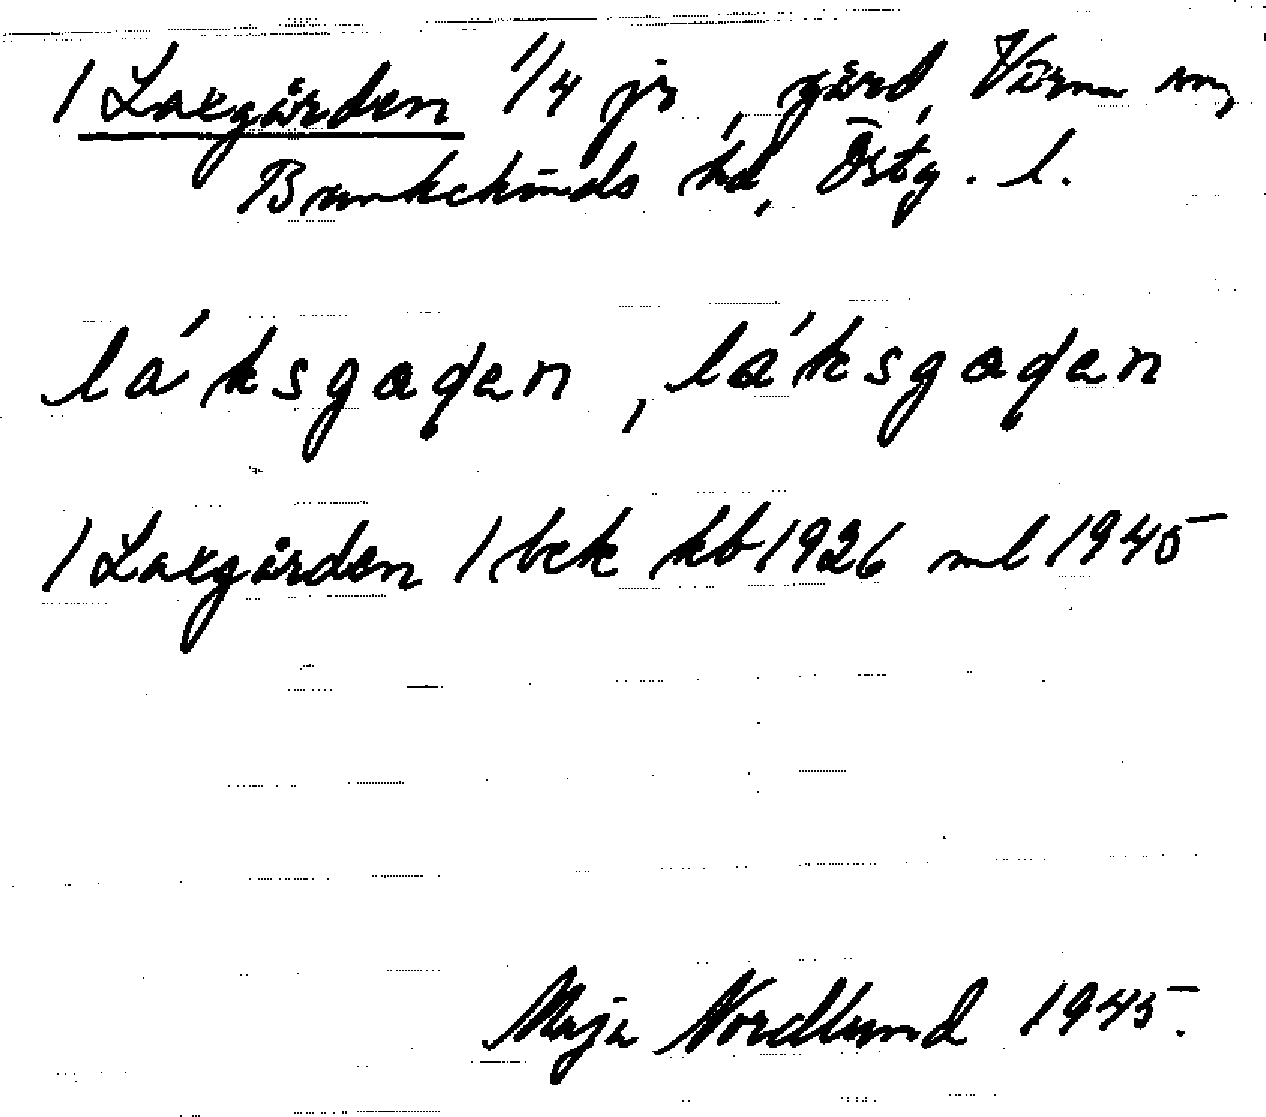 / Laxgården 1/4 jr, gård, Värna sn,
Bankekinds hd, Östg. l.
la´ksgaɖen, la´ksgaɖen
/ Laxgården / bek kb 1926 ml 1945
Maja Nordlund 1945.